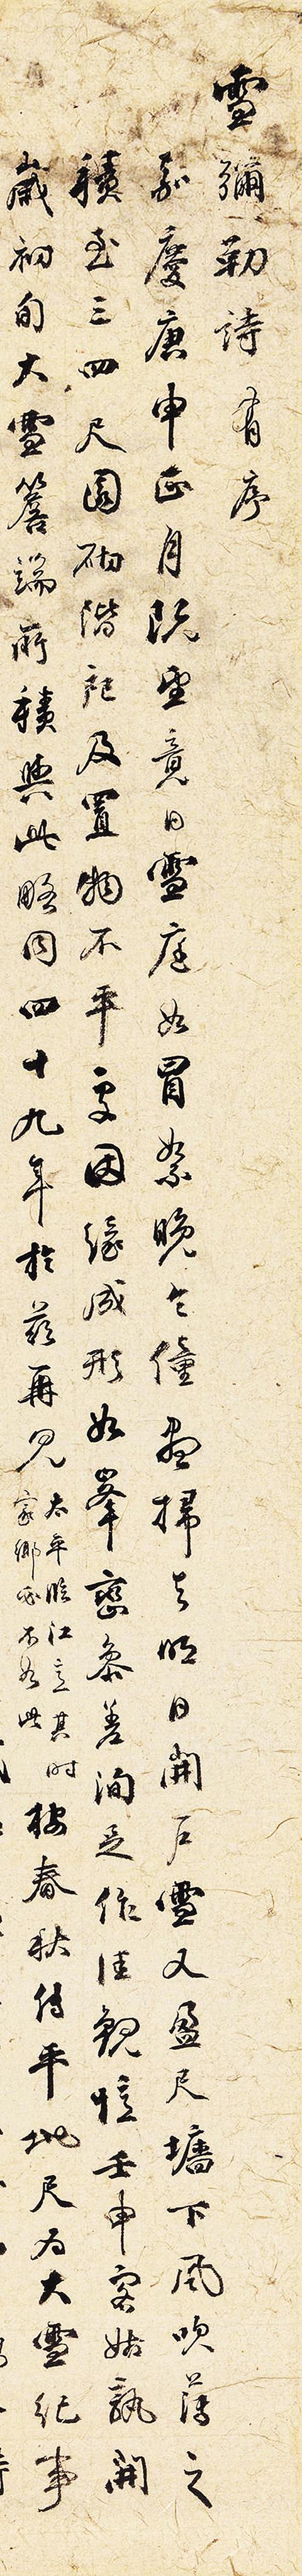 雪彌勒詩有序
嘉慶庚申正月既望竟日雪庭如冒絮晚令僮盡掃去明日開戶雪又盈尺墻下風吹薄之
積至三四尺園砌階祀及置物不平處因緣成形如峯巒參差洵足作佳觀憶壬申客姑孰開
歲初旬大雪簷端所積與此略同四十九年於茲再見
太平臨江意其時
家鄉必不如此
按春秋傳平地尺為大雪紀事